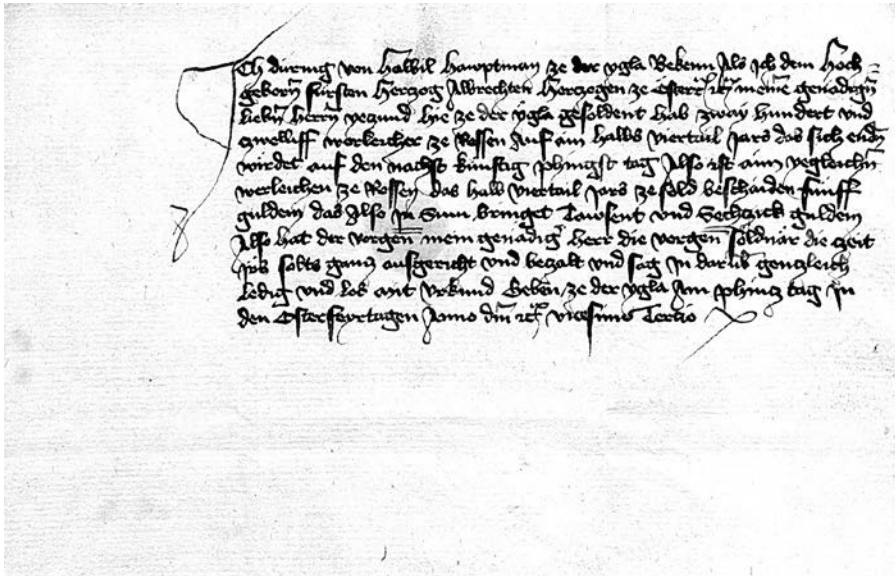 Ich diring von Halbil Hawptman ze der ygla Bekenn Als ich dem Hoch-
geborn fürsten Herczog Albrechten Herczogen ze Österr etc meinem genedign
liebn Herrn yeczund hie ze der ygla gesoldent hab zway Hundert vnd
czwelliff werleicher ze Rossen Auf ain halbs viertail Jars das sich endn
wirdet auf den nachst künftig phingst tag Also ist aim yegleichn
werleichen ze Rossen das halb viertail Jars ze sold beschaiden fünff
guldein das Also in Sum bringet Tawsent vnd Sechczick guldein
Also hat der vorgen mein genadig Herr die vorgen söldnär die czeit
irs solds gancz ausgericht vnd beczalt vnd sag in darüb genczleich
Ledig vnd Los mit vrkund Geben ze der ygla Am phincz tag in
den Osterfeyrtagen Anno dm etc vicesimo Tercio